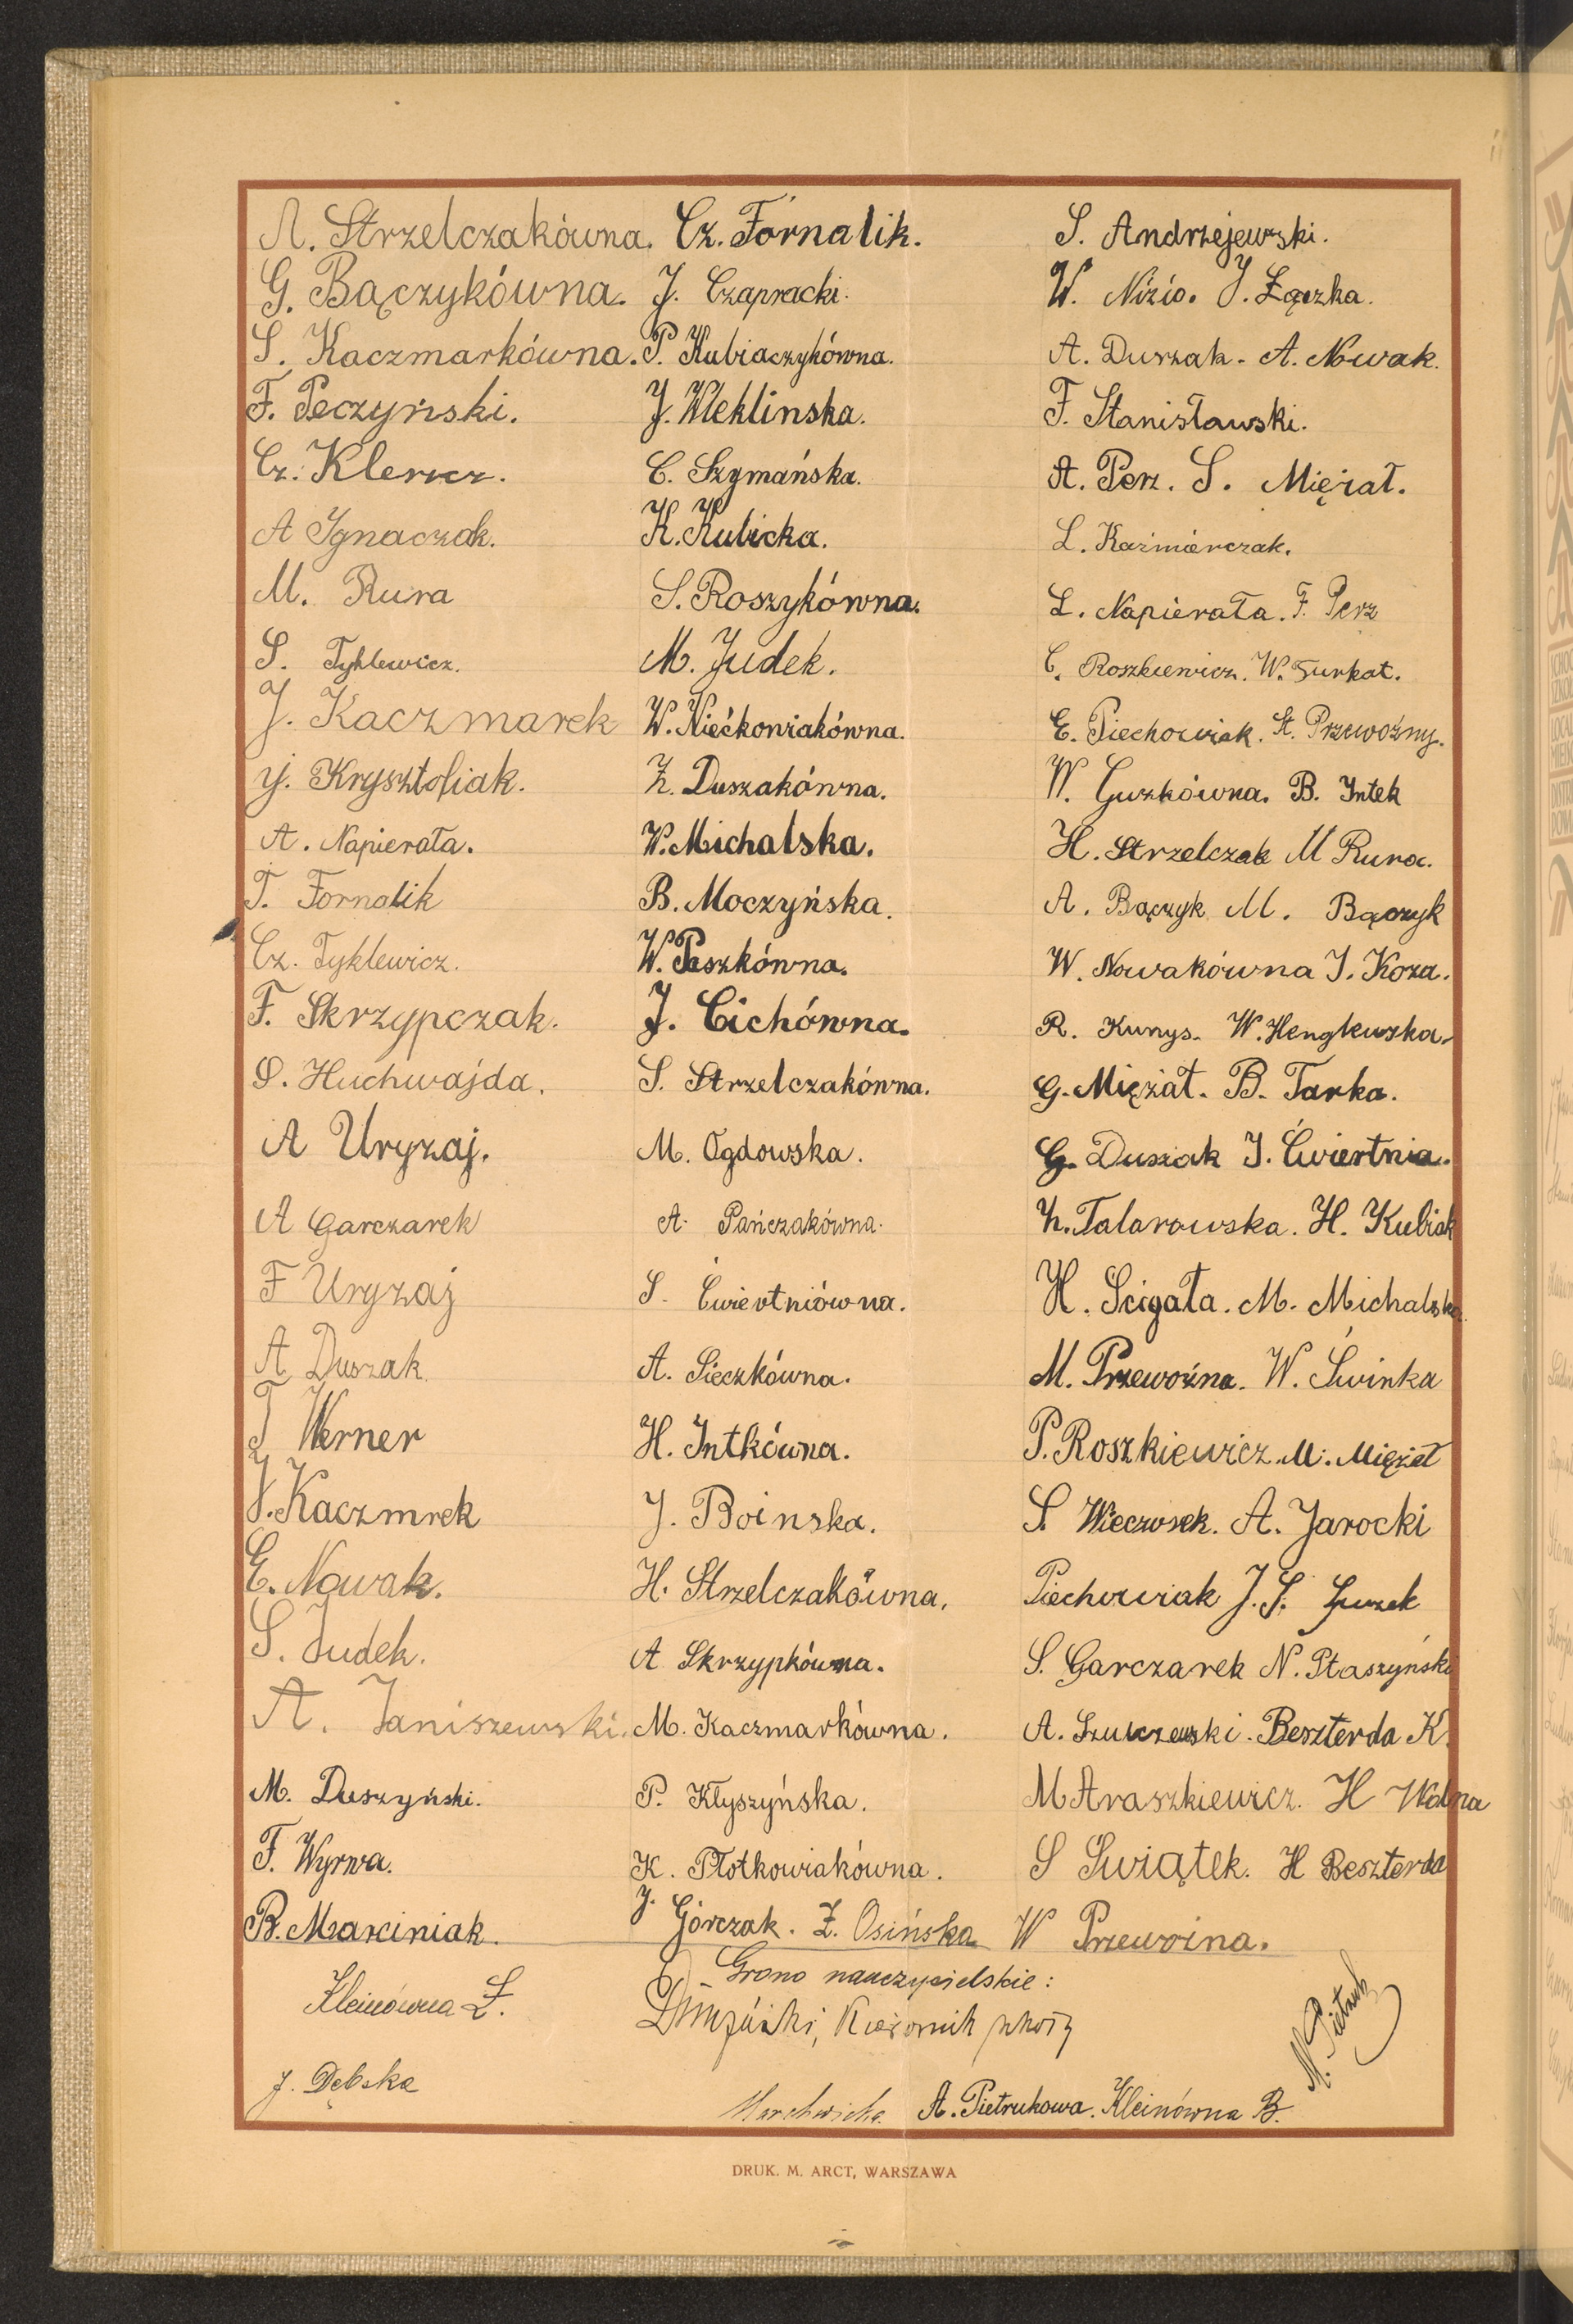 A. Strzelczakówna. Cz. Fornalik. S. Andrzejewski.
G. Bączykówna. J. Czapracki. W. Nizio. J. Łączka.
S. Kaczmarkówna. P. Kubiaczykówna. A. Duszak. A. Nowak.
F. Peczyński. J. Weklinska. F. Stanisławski.
Cz. C. Szymańska. A. Perz. S. Mięziat.
A Ignaczak. K. Kubicka. L. Kaźmierczak.
M. Rura S. Roszykówna. L. Napierała. F. Perz
S. Tyklewicz. M. Judek. C. Roszkiewicz. W. Turkot.
J. Kaczmarek W. Niećkowiakówna. E. Piechowiak. St. Przewoźny.
J. Krysztofiak. Z. Duszakówna. W. Guzkówna. B. Intek
A. Napierała. W. Michalska. H. Strzelczak M Rura.
T. Fornalik B. Moczyńska. A. Bączyk M. Bączyk
Cz. Tyklewicz. W. Paszkówna. W. Nowakówna J. Koza.
F. Skrzypczak. J. Cichówna. R. Kunys. W.
S. Huchwajda. S. Strzelczakówna. G. Mięziat. B. Tarka.
A Uryzaj. M. Ogdowska. G. Duszak J. Ćwiertnia.
A Garczarek A. Pańczakówna. Z. Talarowska. H. Kubiak
F Uryzaj S. Ćwiertniówna. H. Ścigała. M. Michalska
A Duszak A. Sieczkówna. M. Przewoźna. W. Świnka
T Werner H. Intkówna. P. Roszkiewicz. M. Mięziat
J. Kaczmrek J. Boinska. S. Wieczorek. A. Jarocki
E. Nowak. H. Strzelczakówna. Piechowiak J. S. Guzek
S. Judek. A Skrzypkówna. S. Garczarek N. Ptaszyński
A. Janiszewski. M. Kaczmarkówna. A. Szulczewski. Beszterda K.
M. Duszyński. P. Kłyszyńska. M Araszkiewicz. H Wolna
F. Wyrwa. K. Płotkowiakówna. S Świątek. H Beszterda
B. Marciniak. J. Górczak. Z. Osińska W Przewoźna.
Grono nauczycielskie:
Kleinówna Ł. Kierownik szkoły
M. Pietruk
J. Dębska
Marchwicka A. Pietrukowa. Kleinówna B.
DRUK. M. ARCT, WARSZAWA